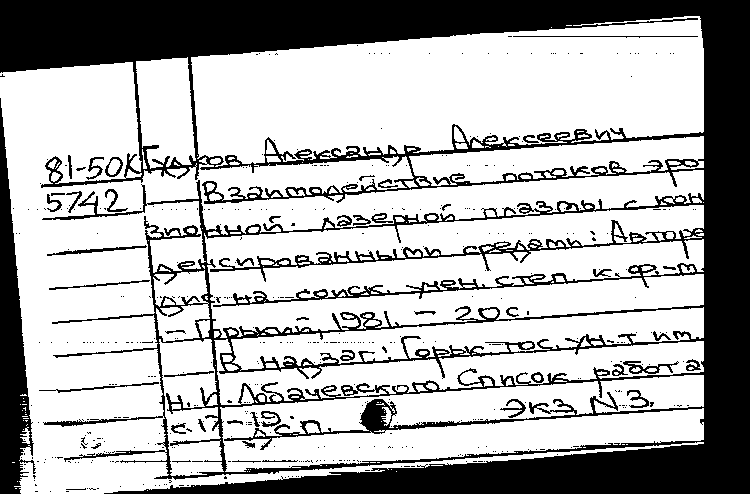 81-50К Гудков, Александр Алексеевич
5742 Взаимодействие потоков эро-
зионной лазерной плазмы с кон
денсированными средами: Авторе
дис. на соиск. учен. степ. к. ф.-м.
- Горький, 1981. - 20 с.
В надзаг.: Горьк. гос. ун-т им.
Н. И. Лобачевского. Список работ а
с. 17-19.
ДСП. Экз N 3.